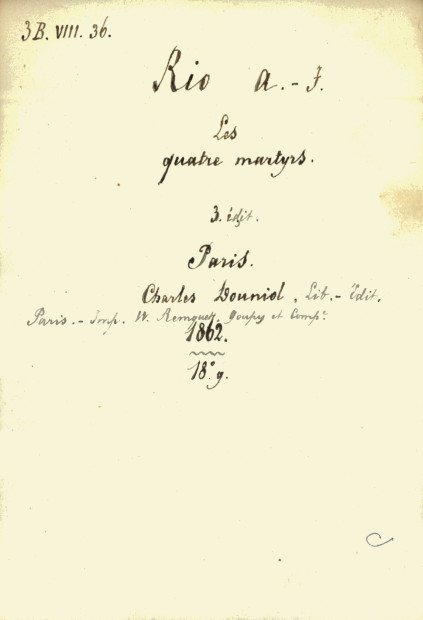 3B. VIII. 36.
Rio A. - F.
Les
quatre martyrs.
3. édit.
Paris.
Charles Douniol, Lib. - édit.
Paris. - Imp. W. Remquet, Goupy et Comp.e
1862.
18° g.